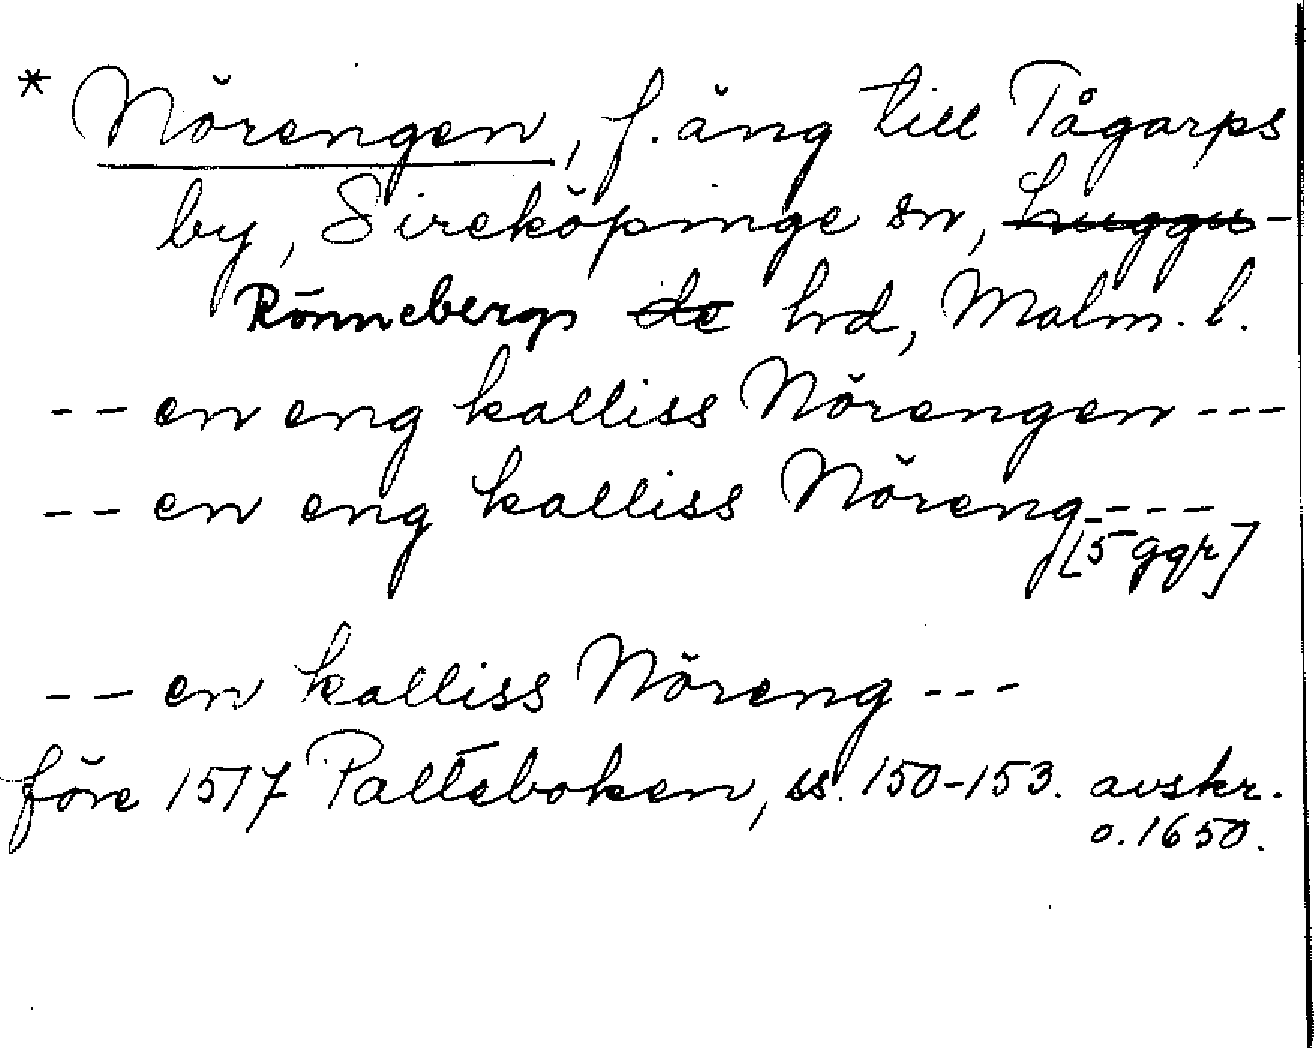 * Nörengen, f. äng till Tågarps
by, Sireköpinge sn, Luggu-
Rönnebergs de hrd, Malm. l.
-- en eng kalliss Nörengen ---
-- en eng kalliss Nöreng ----
[5 ggr]
-- en kalliss Nöreng ---
före 1517 Palteboken, ss. 150-153. avskr.
o. 1650.